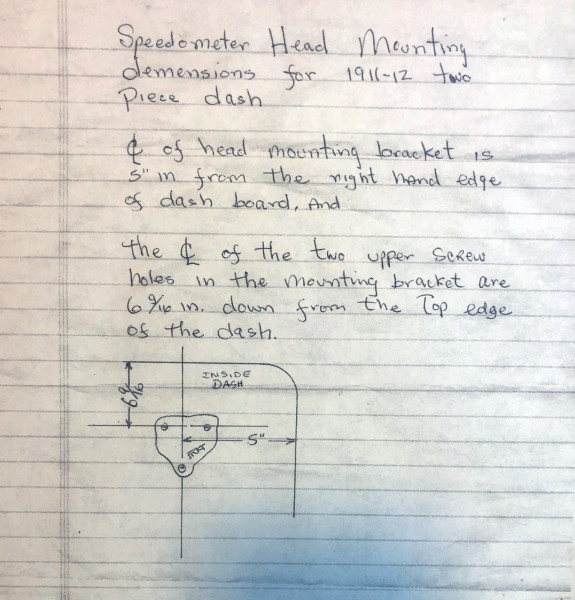 Speedometer Head Mounting
demensions for 1911-12 two
Piece dash
℄ of head mounting bracket is
5" in from the right hand edge
of dash board, And
the ℄ of the two upper screw
holes in the mounting bracket are
6 9/16 in. down from the Top edge
of the dash.
INSIDE
DASH
6 9/16
5"